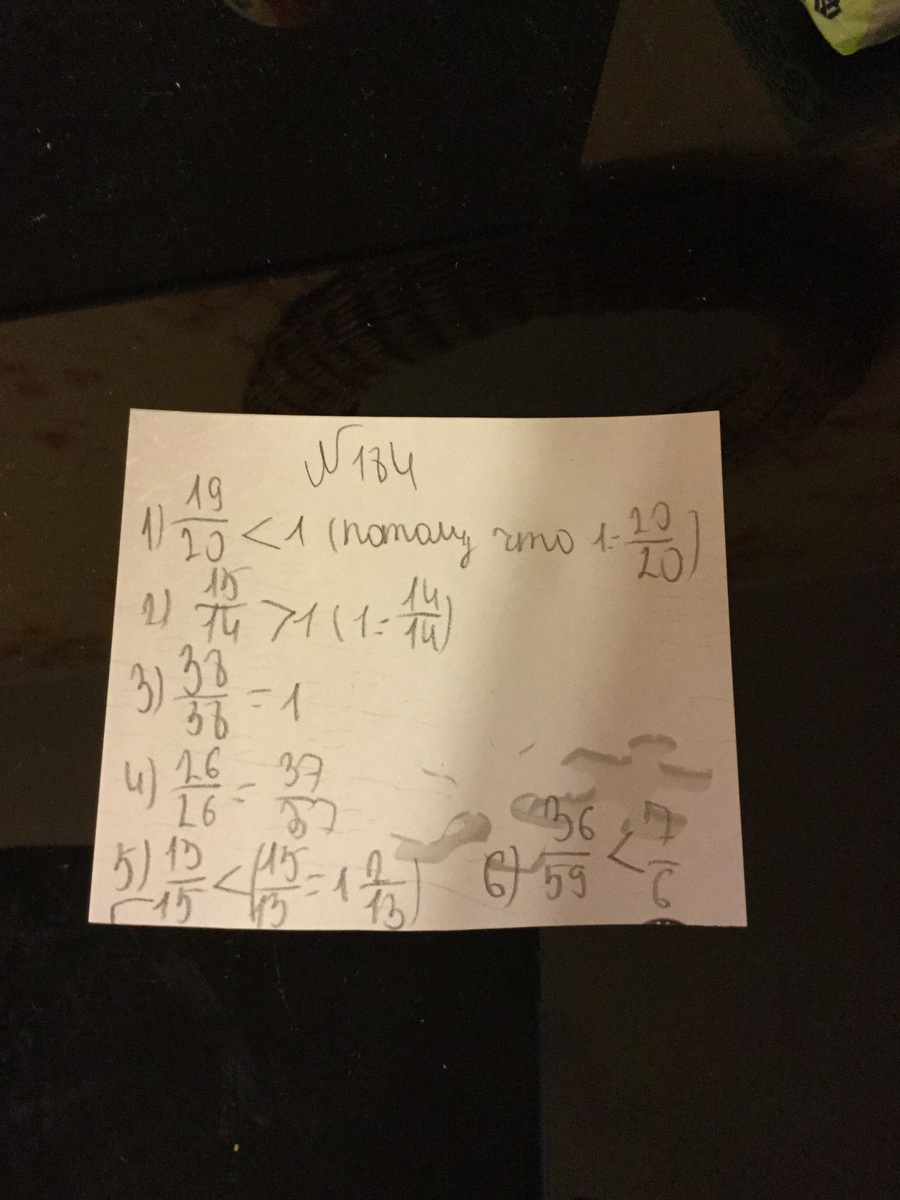 №184
1) 19/20 < 1 (потому что 1=20/20)
2) 15/14 > 1 (1=14/14)
3) 38/38 = 1
4) 26/26 = 37/37
5) 13/15 < (15/13 = 1 2/13)
6) 36/59 < 7/6